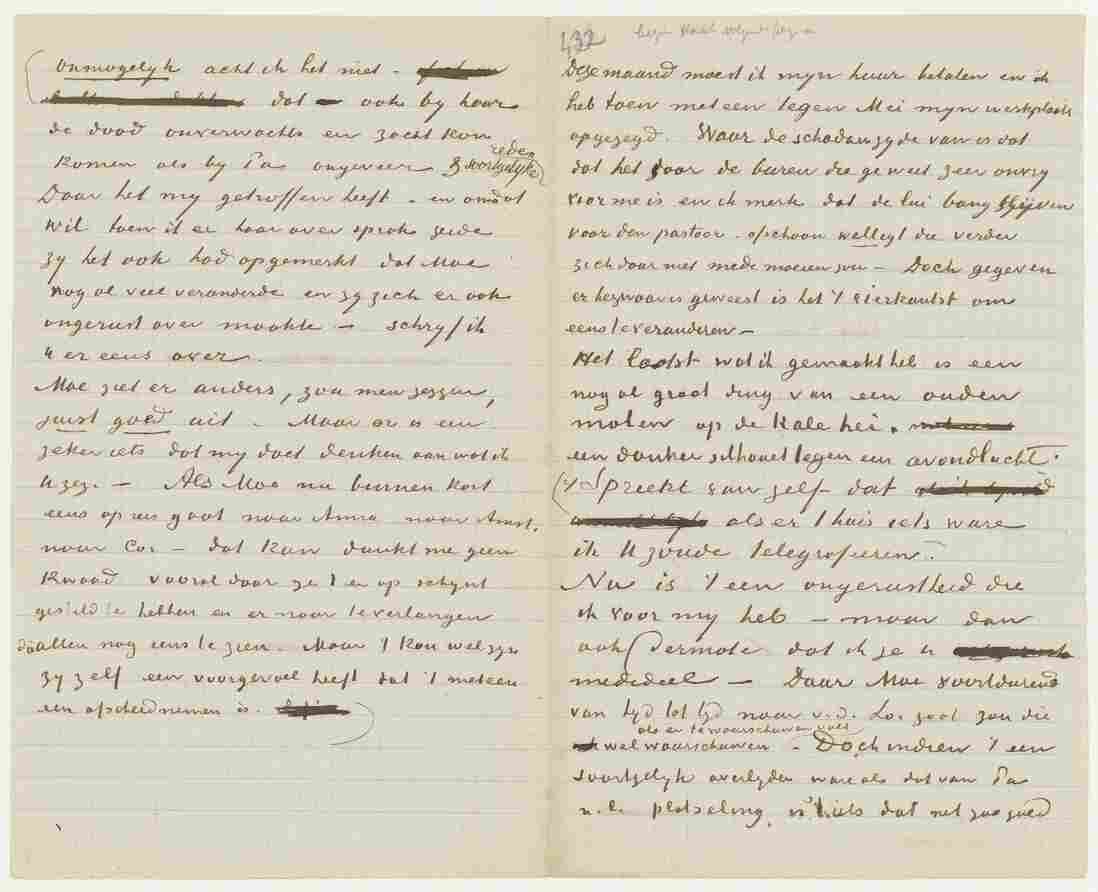 onmogelyk acht ik het niet –
dat ook by haar
de dood onverwachts en zacht kon
komen als by Pa ongeveer
reden
soortgelyke
Daar het my getroffen heeft – en omdat
Wil toen ik er haar over sprak zeide
zy het ook had opgemerkt dat Moe
nog al veel veranderde en zy zich er ook
ongerust over maakte – schryf ik
U er eens over.
Moe ziet er anders, zou men zeggen,
juist goed uit – Maar er is een
zeker iets dat my doet denken aan wat ik
U zeg. – Als Moe nu binnen kort
eens op reis gaat naar Anna naar Amst.
naar Cor – dat kan dunkt me geen
kwaad vooral daar ze 't er op schynt
gesteld te hebben en er naar te verlangen
allen nog eens te zien. Maar 't kon wel zyn
zy zelf een voorgevoel heeft dat 't meteen
een afscheidnemen is.
432
Deze maand moest ik myn huur betalen en ik
heb toen meteen tegen Mei myn werkplaats
opgezegd. Waar de schaduwzyde van is dat
dat het door de buren die geweest zeer onvry
voor me is en ik merk dat de lui bang blyven
voor den pastoor – ofschoon welligt die verder
zich daar niet mede moeien zou – Doch gegeven
er bezwaar is geweest is het 't vierkantst om
eens te veranderen –
Het laatst wat ik gemaakt heb is een
nog al groot ding van een ouden
molen op de kale hei.
een donker silhouet tegen een avondlucht.
Spreekt van zelf dat
als er 't huis iets ware
ik U zoude telegrafieeren.
Nu is 't een ongerustheid die
ik voor my heb – maar dan
ook dermate dat ik ze U
mededeel – Daar Moe voortdurend
van tyd tot tyd naar v.d. Loo gaat zou die
als er te waarschuwen viel
wel waarschuwen – Doch indien 't een
soortgelyk overlyden ware als dat van Pa
n.l. plotseling, is 't iets dat net zoo goed